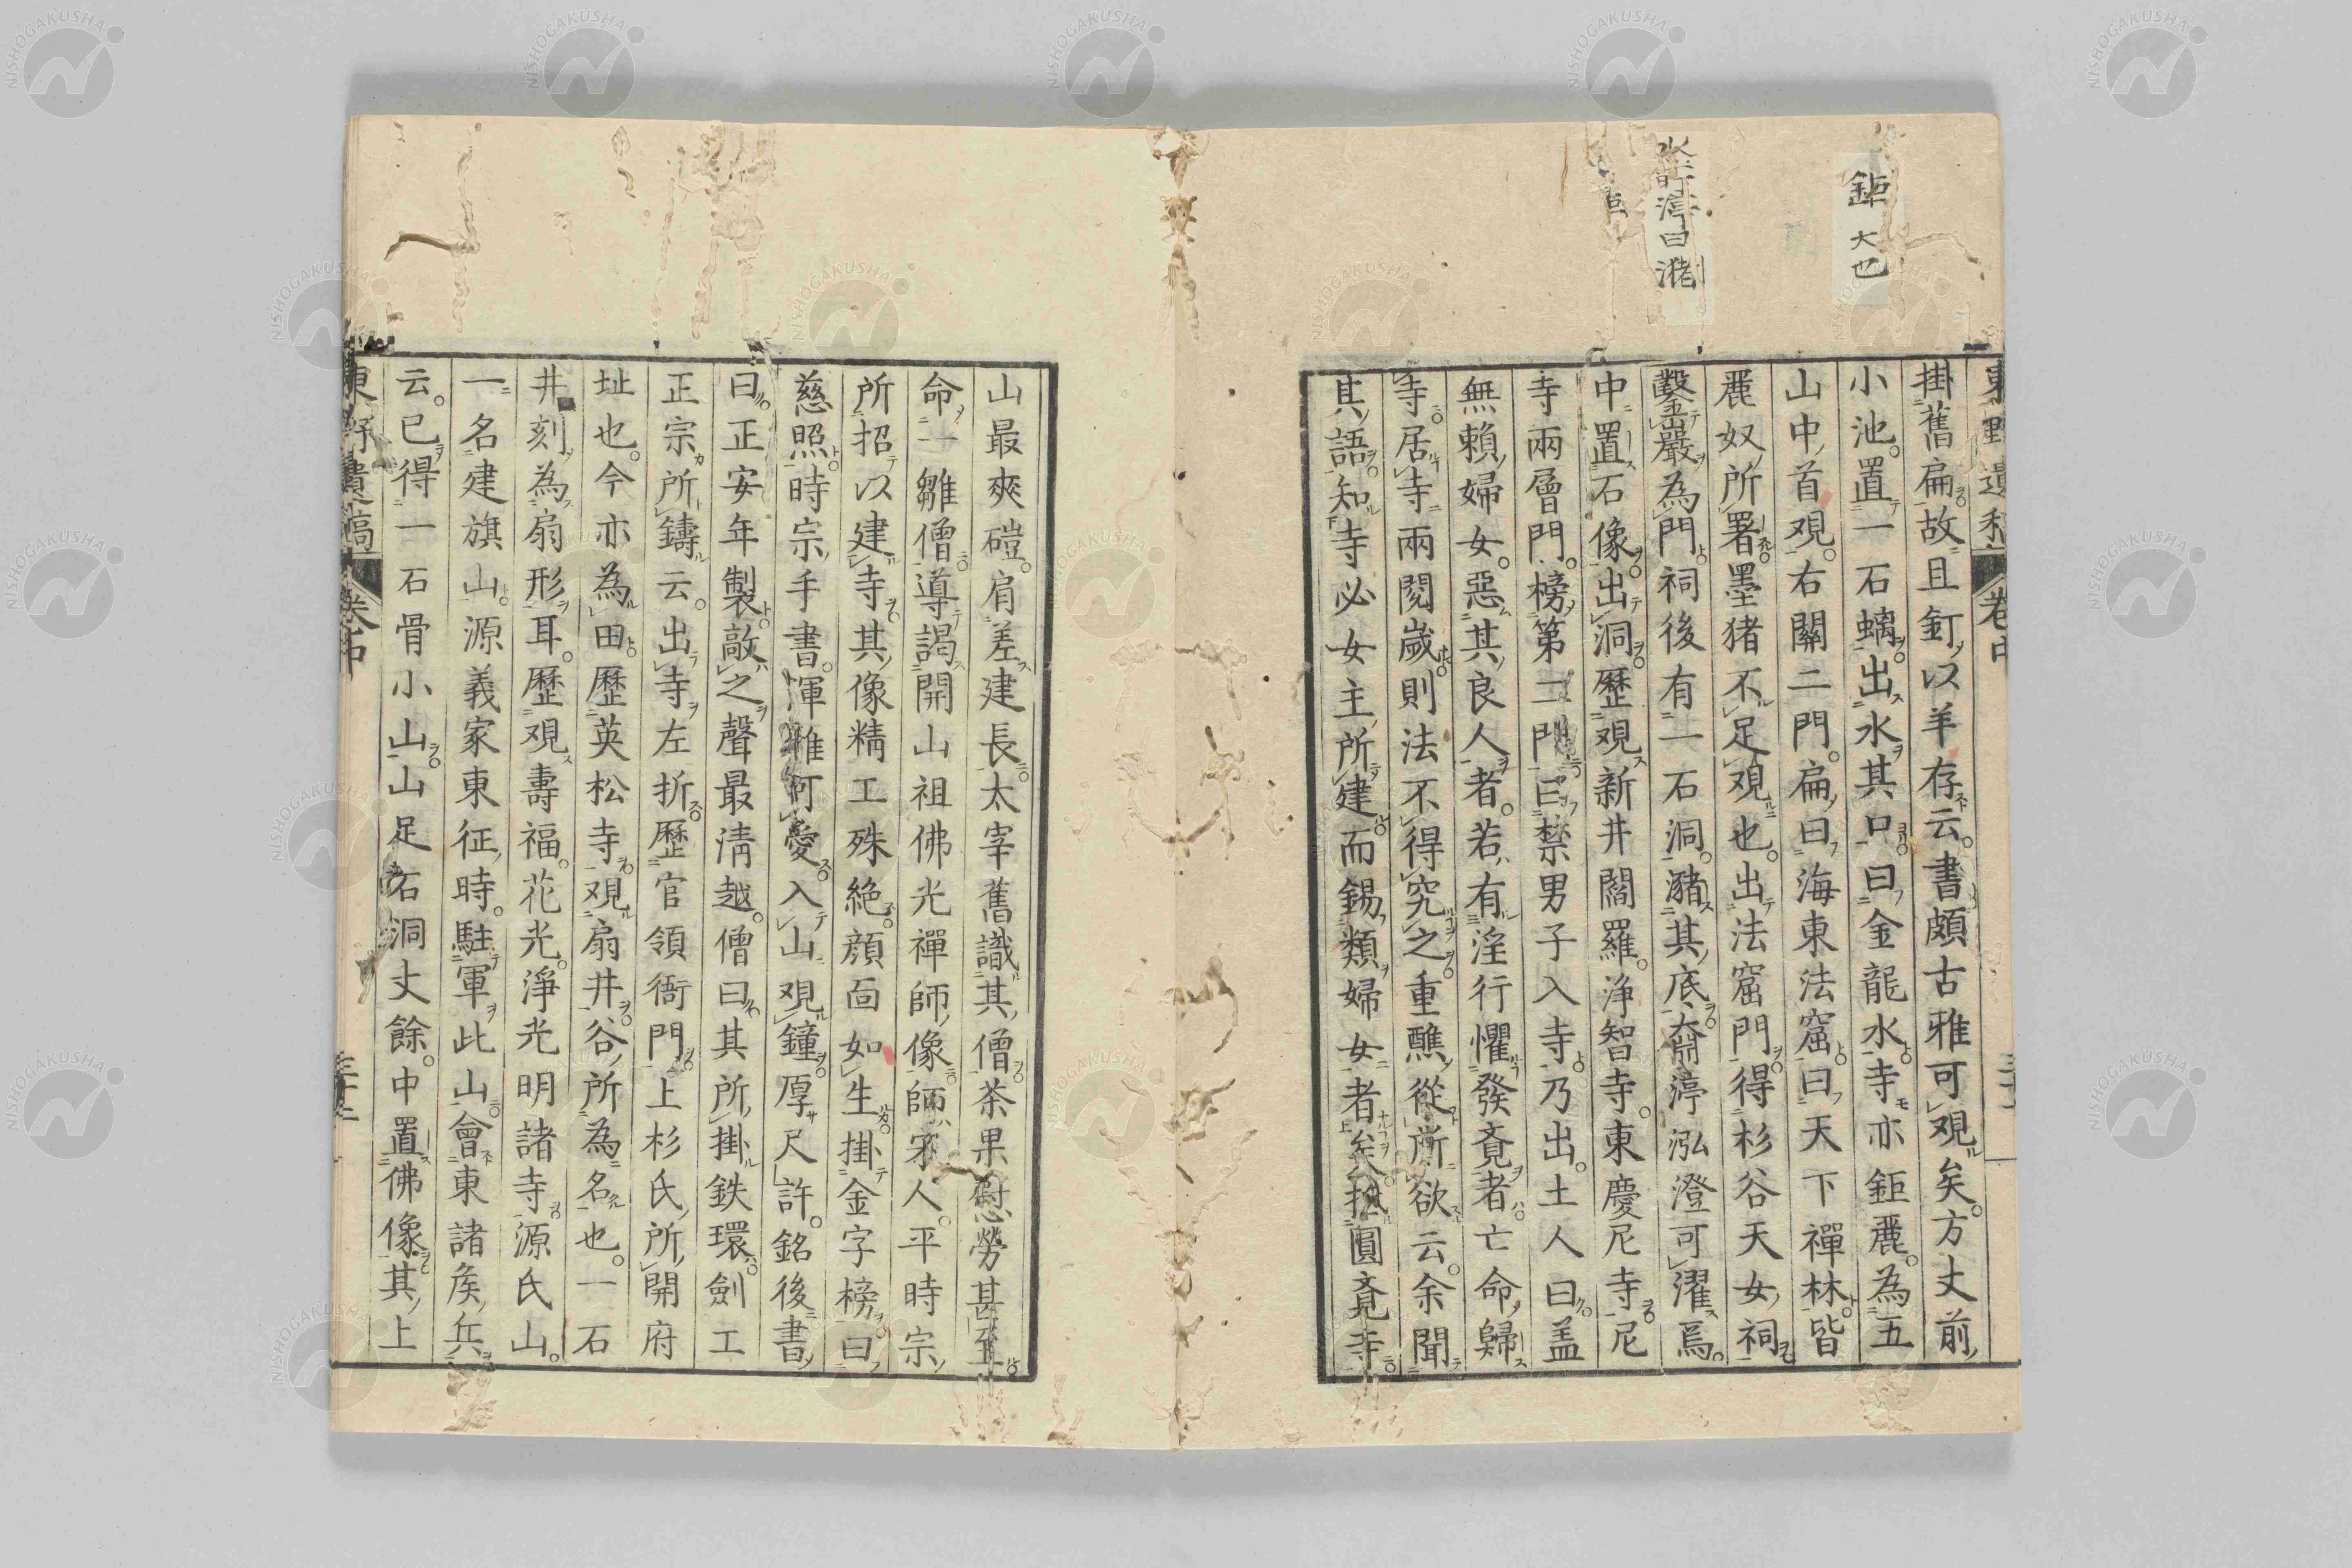 鉅 大也
水
停曰瀦
東野遺稿 卷中
掛舊扁故且釘以羊存云書頗古雅可觀矣方丈前
小池置一石螭出水其口曰金龍水寺亦鉅麗為五
山中首观右關二門扁曰海東法窟曰天下禪林皆
麗奴所署墨猪不足观也出法窟門得杉谷天女祠
鑿巖為門祠後有一石洞瀦其底淵停泓澄可濯焉
中置石像出洞歷观新井閻羅淨智寺東慶尼寺尼
寺兩層門榜第二門曰禁男子入寺乃出土人曰盖
無賴婦女惡其良人者若有淫行懼發竟者亡命歸
寺居寺兩閱歲則法不得究之重醮從所欲云余聞
其語知寺必女主所建而錫類婦女者矣抵圓竟寺
山最爽磑肩差建長太宰舊識其僧茶果慰勞甚至
命一雛僧導謁開山祖佛光禪師像師宋人平時宗
所招以建寺其像精工殊絶顔面如生掛金字榜曰
慈照時宗手書渾雅可愛入山观鐘厚尺許銘後書
曰正安年製敲之聲最清越僧曰其所掛鉄環劍工
正宗所鑄云出寺左折歷官領衙門上杉氏所開府
址也今亦為田歷英松寺观扇井谷所為名也一石
井刻為扇形耳歷观壽福花光淨光明諸寺源氏山
一名建旗山源義家東征時駐軍此山會東諸矦兵
云已得一石骨小山山足石洞丈餘中置佛像其上
東野遺稿 卷中
NISHOGAKUSHA